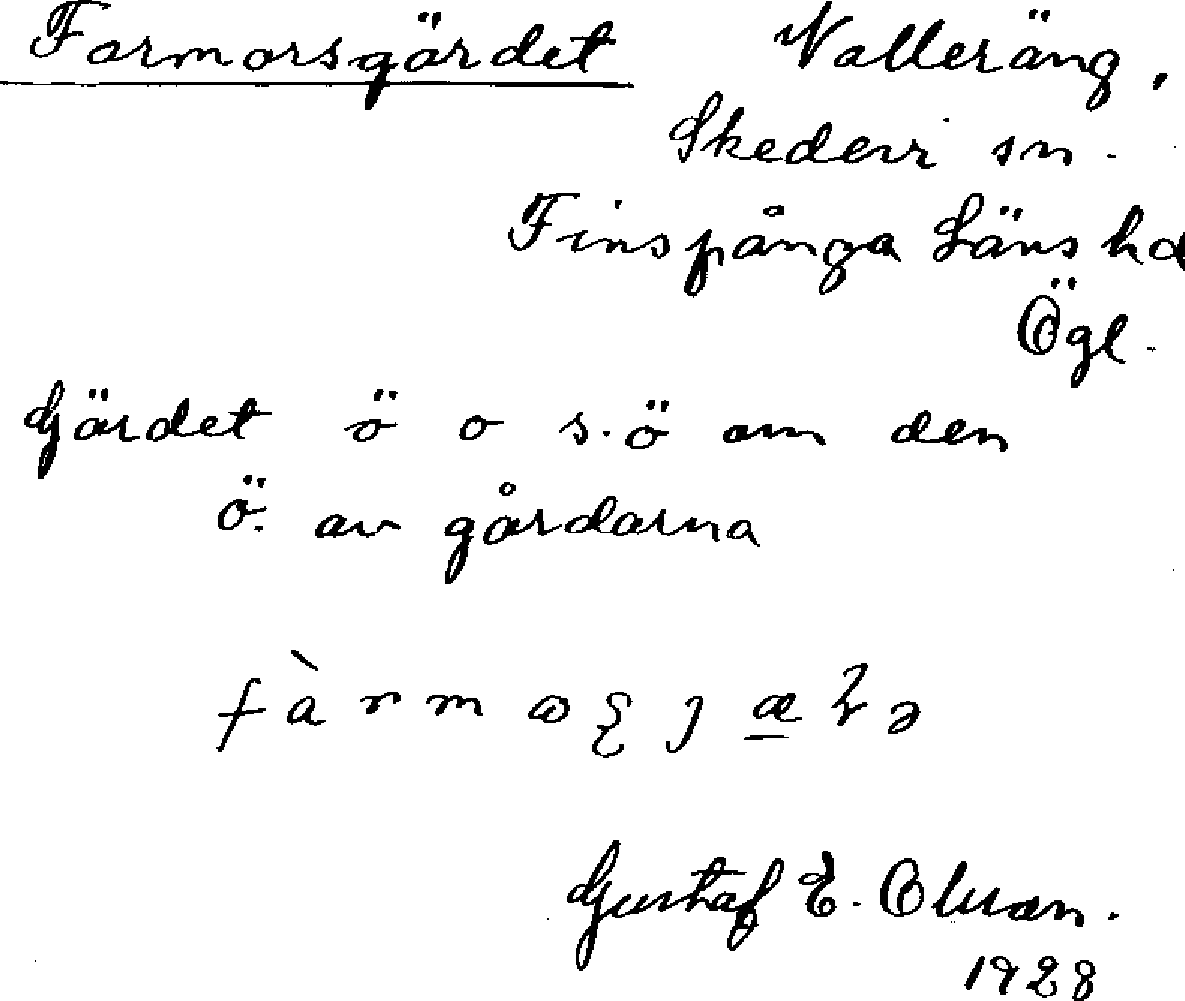 Farmorsgärdet Valleräng,
Skedevi sn.
Finspånga Läns hd
Ögl.
Gärdet ö o s.ö om den
ö. av gårdarna
Gustaf E. Olsson.
1928